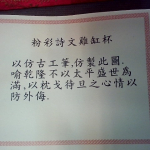 粉彩詩文雞缸杯
以仿古工筆,仿製此圖.
喻乾隆不以太平盛世為
滿,以枕戈待旦之心情以
防外侮.